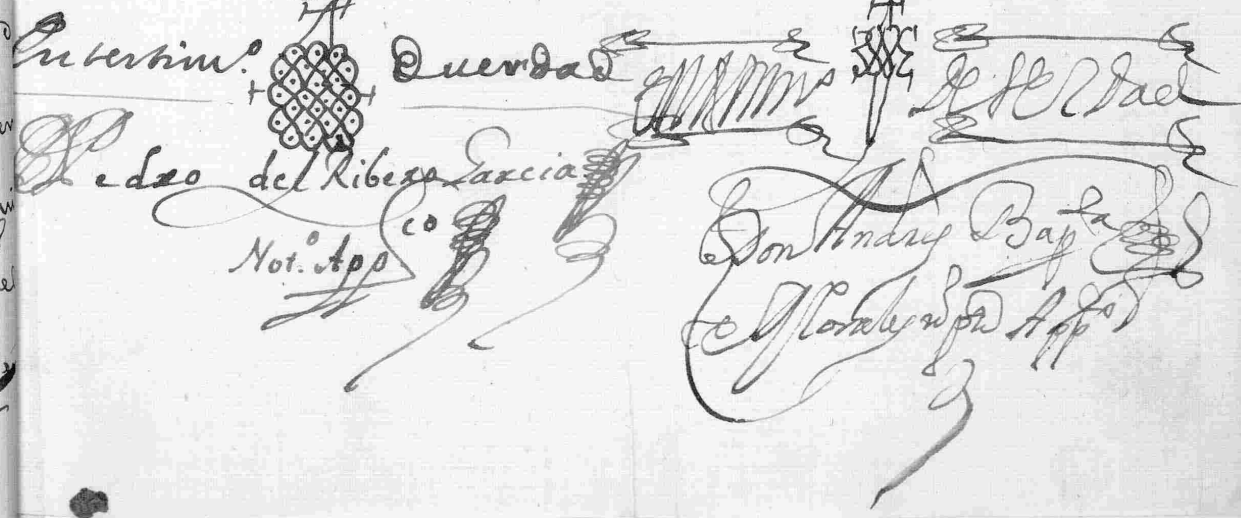 En testim.º de verdad
Pedro del Ribero Garcia
Not.º App.co
En testim.º de verdad
Don Andres Bap.ta
de Morales App.º